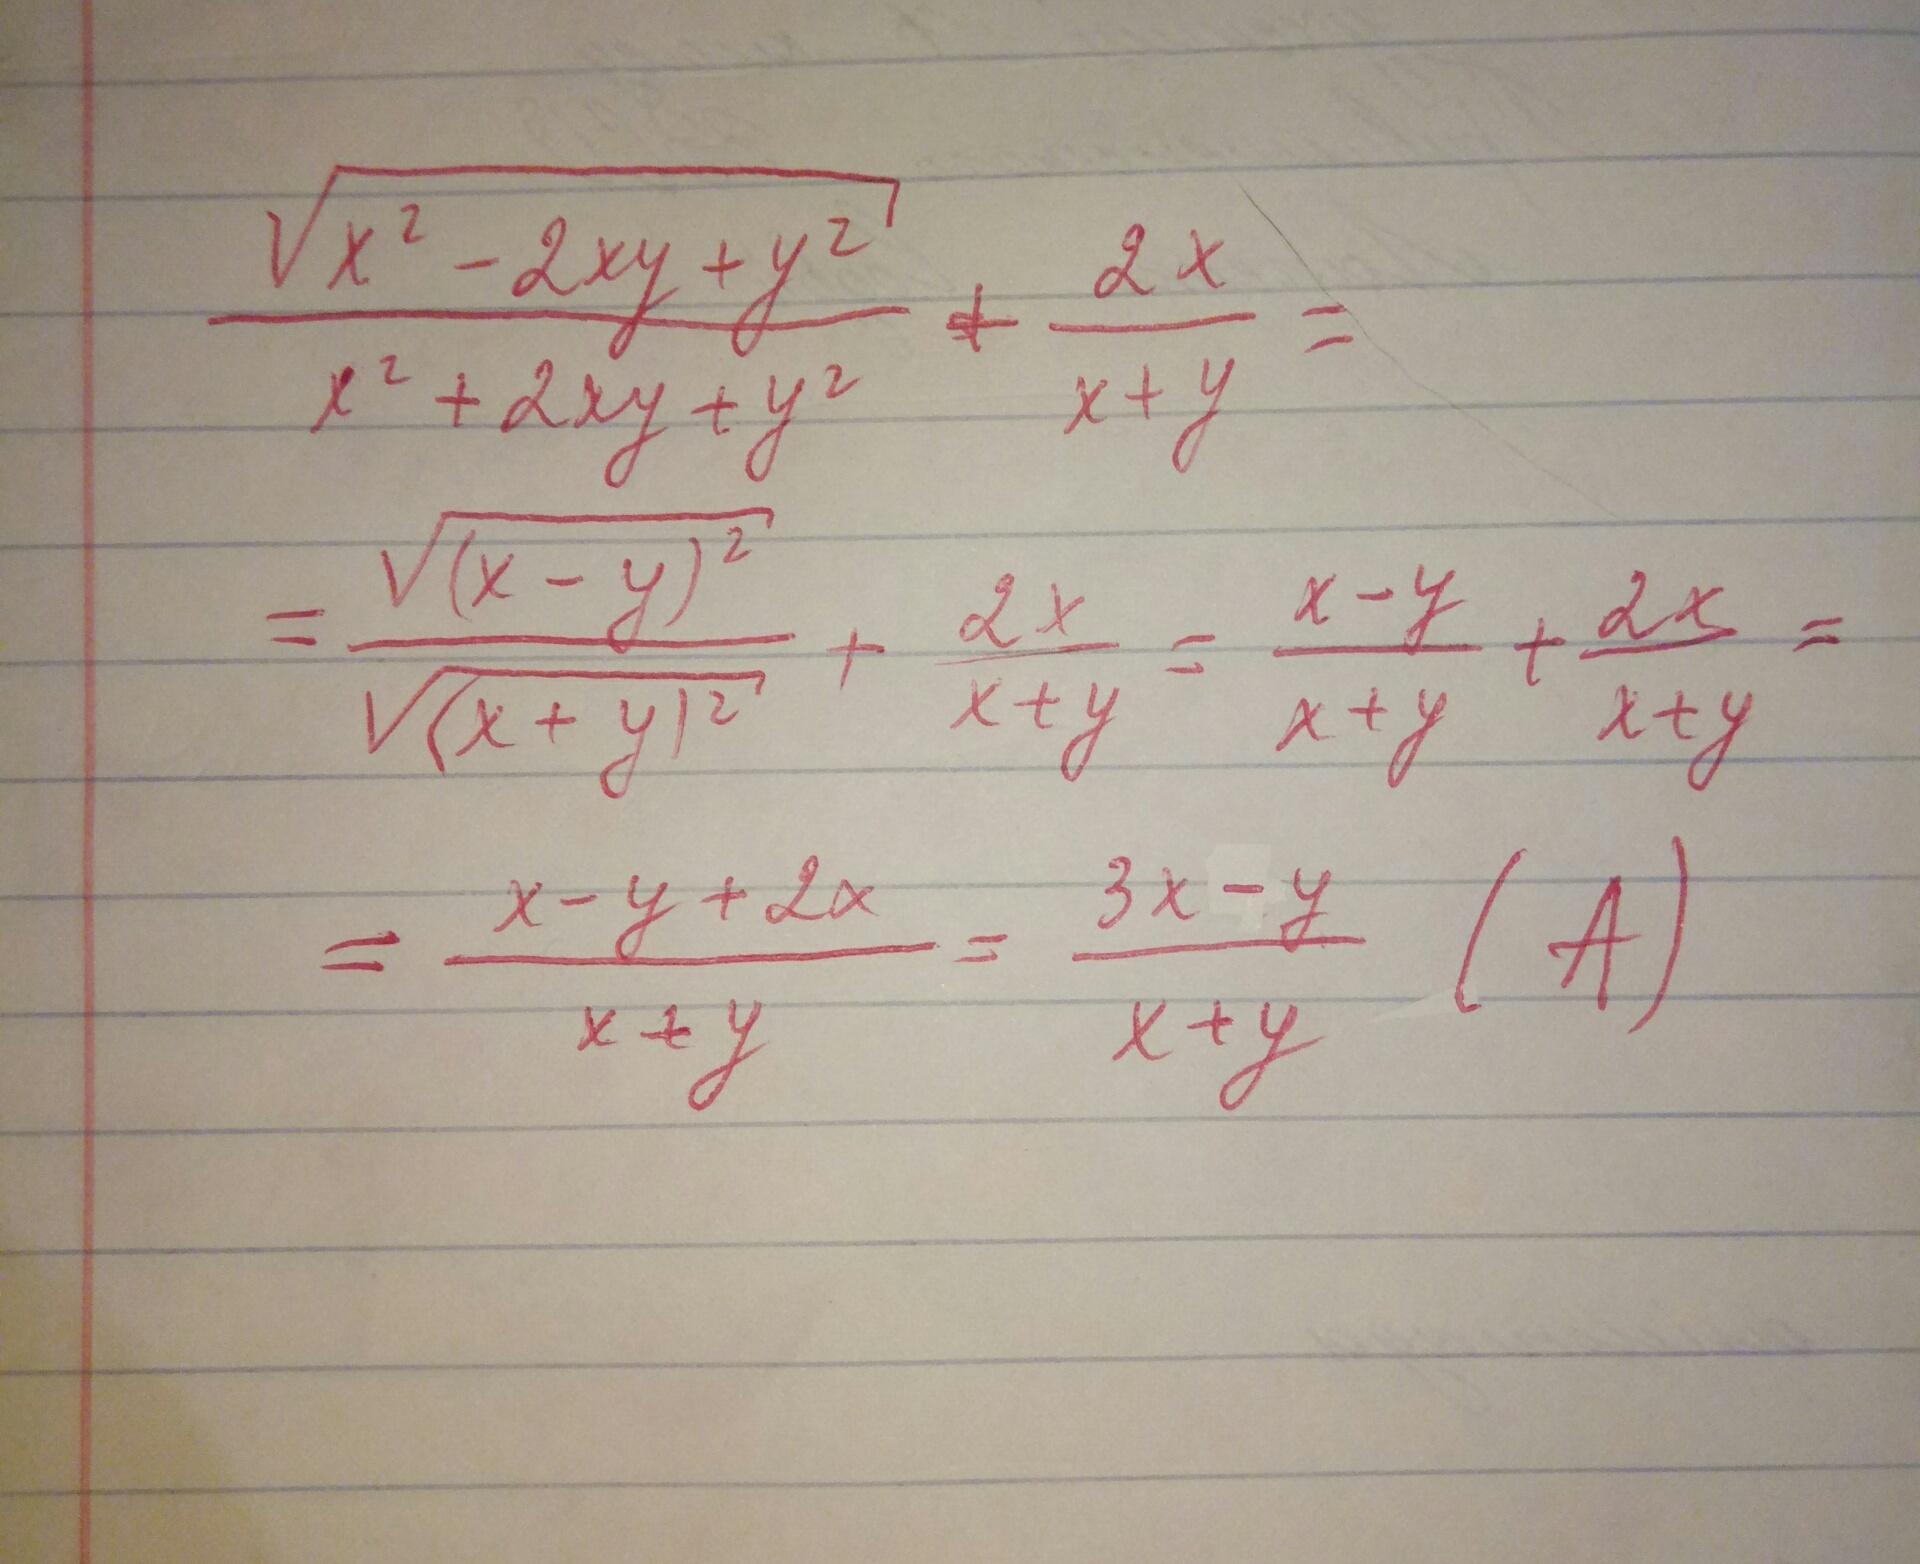 √(x² - 2xy + y²) / (x² + 2xy + y²) + 2x / (x + y) =
= √(x - y)² / √(x + y)² + 2x / (x + y) = (x - y) / (x + y) + 2x / (x + y) =
= (x - y + 2x) / (x + y) = (3x - y) / (x + y) (A)